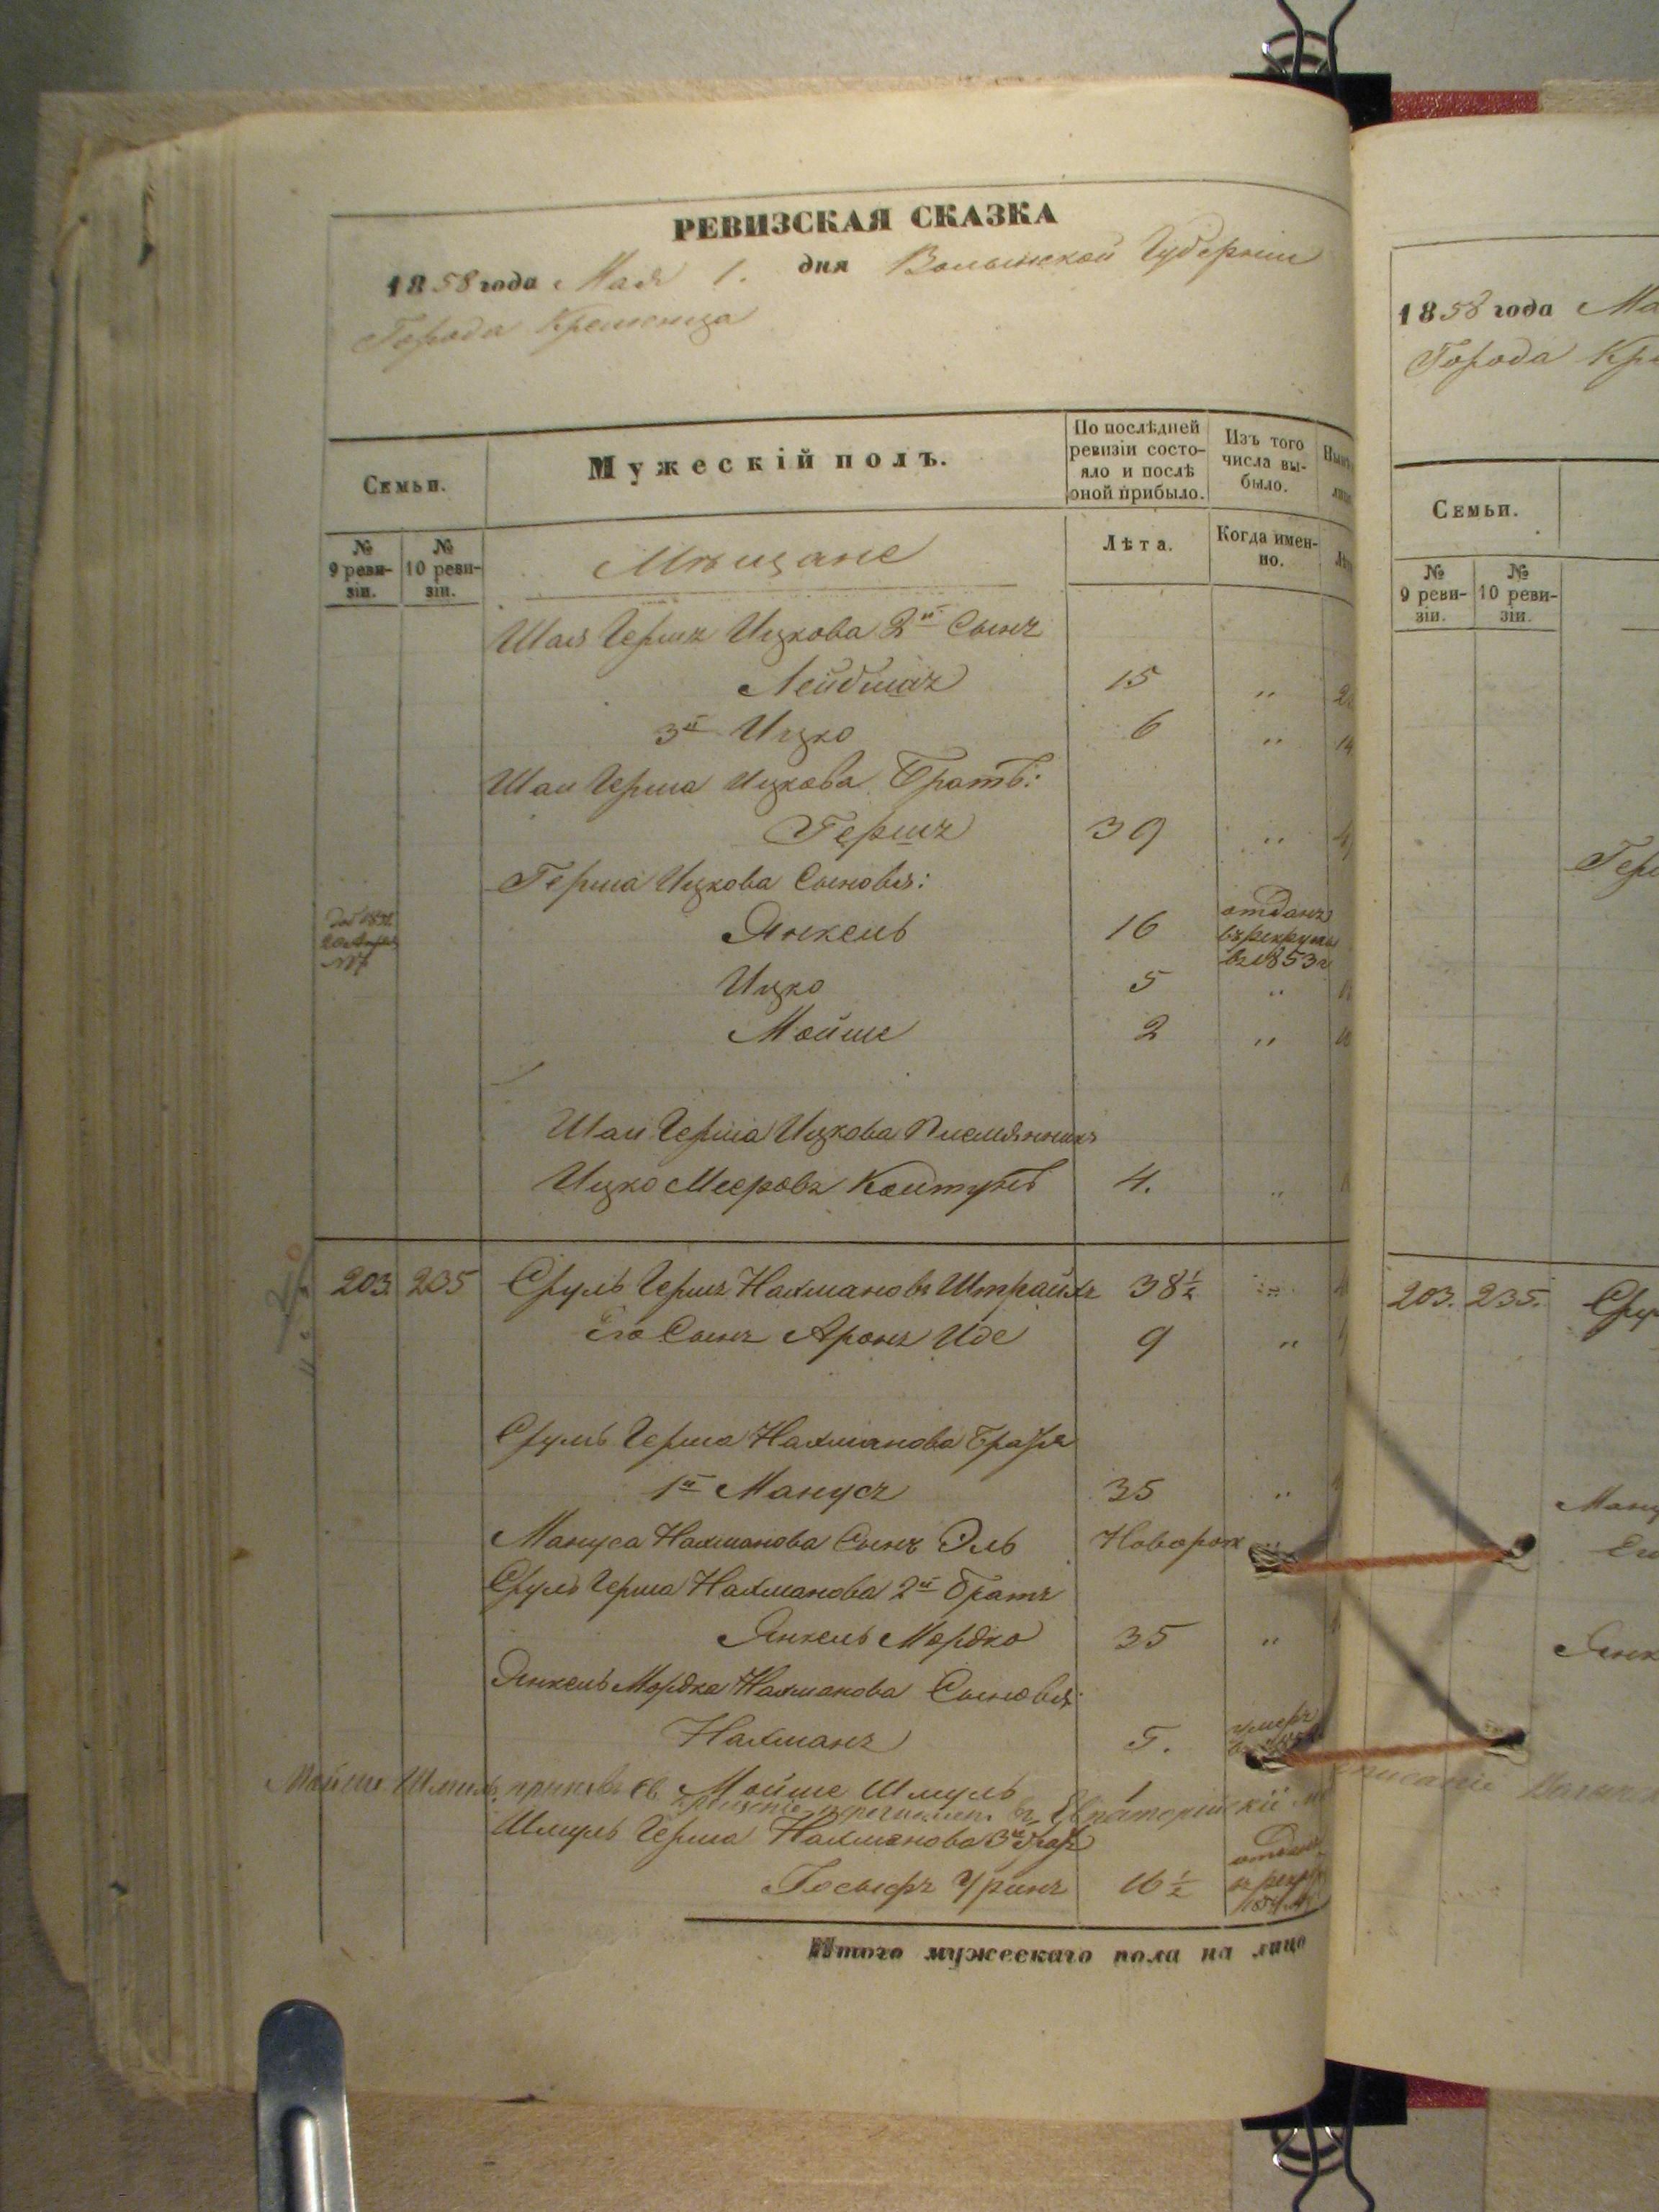 РЕВИЗСКАЯ СКАЗКА
1858 года Мая 1. дня Волынской Губерніи
Города Кременца
Семьи.
Мужескій полъ.
По послѣдней ревизіи состо-
яло и послѣ оной прибыло.
Изъ того числа вы-
было.
№ 9 реви-
зіи.
№ 10 реви-
зіи.
Мѣщане
Лѣта.
Когда имен-
но.
Шая Герша Ицкова 2й Сынъ
Лейбишъ 15 "
3й Ицко 6 "
Шаи Герша Ицкова Братъ:
Гершъ 39 "
Герша Ицкова Сыновья:
Янкель 16 отданъ
въ рекруты
въ 1853 г
Ицко 5 "
Мойше 2 "
Шаи Герша Ицкова Племянникъ
Ицко Мееровъ 4. "
203. 235 Сруль Гершъ Нахмановъ Штрайхъ 38½ "
Его Сынъ Аронъ Иде 9 "
Сруль Герша Нахманова Братья
1й Манусъ 35 "
Мануса Нахманова Сынъ Эль Новорож "
Сруль Герша Нахманова 2й братъ
Янкель Мордко 35 "
Янкель Мордка Нахманова Сыновья:
Нахманъ 5. умеръ
Мойше Шмуль 1
Мойше Шмуль принявъ св.
крещеніе перечисленъ въ
Шмуль Герша Нахманова 3й братъ
Іосыфъ Уринъ 16½ отданъ
въ рекр
1854
Итого мужескаго пола на лицо
1858 года Ма
Города Кре
Семьи.
№ 9 реви-
зіи.
№ 10 реви-
зіи.
Герш
203. 235. Сру
Ману
Его
Янк